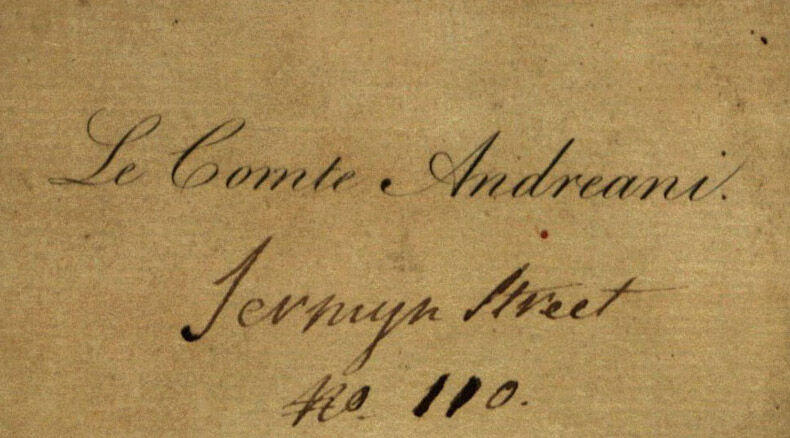 Le Comte Andreani.
Jermyn Street
No. 110.